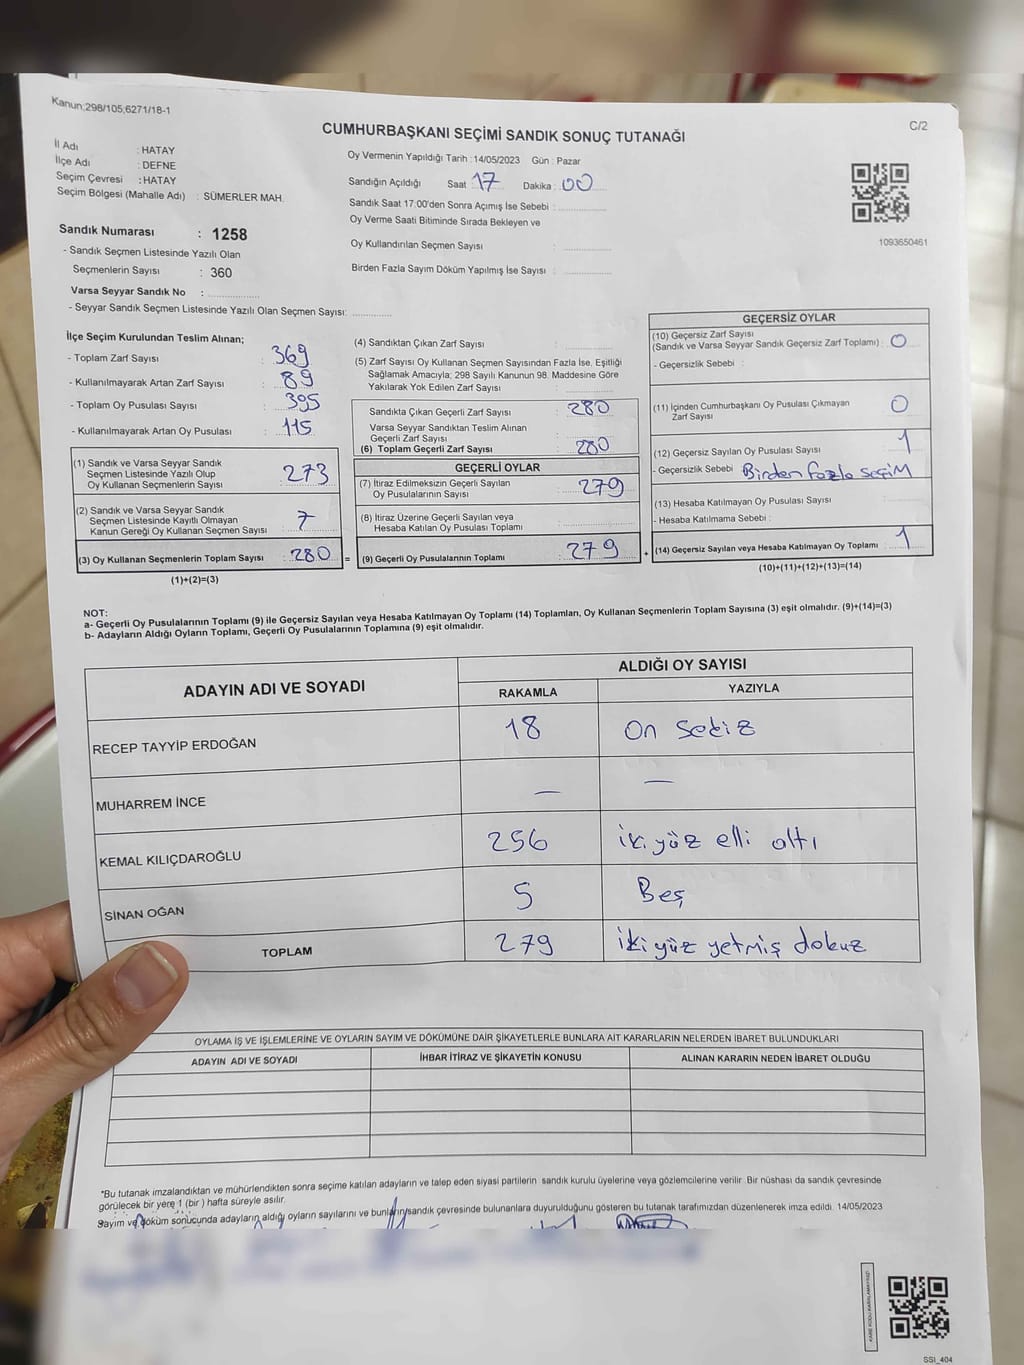 Kanun;298/105;6271/18-1
C/2
CUMHURBAŞKANI SEÇİMİ SANDIK SONUÇ TUTANAĞI
İl Adı : HATAY
İlçe Adı : DEFNE
Seçim Çevresi : HATAY
Seçim Bölgesi (Mahalle Adı) : SÜMERLER MAH.
Oy Vermenin Yapıldığı Tarih : 14/05/2023 Gün : Pazar
Sandığın Açıldığı Saat : 17 Dakika : 00
Sandık Saat 17:00'den Sonra Açımış İse Sebebi :
Oy Verme Saati Bitiminde Sırada Bekleyen ve
Oy Kullandırılan Seçmen Sayısı :
Birden Fazla Sayım Döküm Yapılmış İse Sayısı :
1093650461
Sandık Numarası : 1258
- Sandık Seçmen Listesinde Yazılı Olan
Seçmenlerin Sayısı : 360
Varsa Seyyar Sandık No :
- Seyyar Sandık Seçmen Listesinde Yazılı Olan Seçmen Sayısı:
İlçe Seçim Kurulundan Teslim Alınan;
- Toplam Zarf Sayısı : 369
- Kullanılmayarak Artan Zarf Sayısı : 89
- Toplam Oy Pusulası Sayısı : 395
- Kullanılmayarak Artan Oy Pusulası : 115
(1) Sandık ve Varsa Seyyar Sandık
Seçmen Listesinde Yazılı Olup
Oy Kullanan Seçmenlerin Sayısı : 273
(2) Sandık ve Varsa Seyyar Sandık
Seçmen Listesinde Kayıtlı Olmayan
Kanun Gereği Oy Kullanan Seçmen Sayısı : 7
(3) Oy Kullanan Seçmenlerin Toplam Sayısı : 280 =
(1)+(2)=(3)
(4) Sandıktan Çıkan Zarf Sayısı :
(5) Zarf Sayısı Oy Kullanan Seçmen Sayısından Fazla İse, Eşitliği
Sağlamak Amacıyla; 298 Sayılı Kanunun 98. Maddesine Göre
Yakılarak Yok Edilen Zarf Sayısı :
Sandıkta Çıkan Geçerli Zarf Sayısı : 280
Varsa Seyyar Sandıktan Teslim Alınan
Geçerli Zarf Sayısı :
(6) Toplam Geçerli Zarf Sayısı : 280
GEÇERLİ OYLAR
(7) İtiraz Edilmeksizin Geçerli Sayılan
Oy Pusulalarının Sayısı : 279
(8) İtiraz Üzerine Geçerli Sayılan veya
Hesaba Katılan Oy Pusulası Toplamı :
(9) Geçerli Oy Pusulalarının Toplamı : 279 +
GEÇERSİZ OYLAR
(10) Geçersiz Zarf Sayısı
(Sandık ve Varsa Seyyar Sandık Geçersiz Zarf Toplamı) : 0
- Geçersizlik Sebebi :
(11) İçinden Cumhurbaşkanı Oy Pusulası Çıkmayan
Zarf Sayısı : 0
(12) Geçersiz Sayılan Oy Pusulası Sayısı : 1
- Geçersizlik Sebebi : Birden fazla seçim
(13) Hesaba Katılmayan Oy Pusulası Sayısı :
- Hesaba Katılmama Sebebi :
(14) Geçersiz Sayılan veya Hesaba Katılmayan Oy Toplamı : 1
(10)+(11)+(12)+(13)=(14)
NOT:
a- Geçerli Oy Pusulalarının Toplamı (9) ile Geçersiz Sayılan veya Hesaba Katılmayan Oy Toplamı (14) Toplamları, Oy Kullanan Seçmenlerin Toplam Sayısına (3) eşit olmalıdır. (9)+(14)=(3)
b- Adayların Aldığı Oyların Toplamı, Geçerli Oy Pusulalarının Toplamına (9) eşit olmalıdır.
ADAYIN ADI VE SOYADI ALDIĞI OY SAYISI
RAKAMLA YAZIYLA
RECEP TAYYİP ERDOĞAN 18 On sekiz
MUHARREM İNCE — —
KEMAL KILIÇDAROĞLU 256 iki yüz elli altı
SİNAN OĞAN 5 Beş
TOPLAM 279 iki yüz yetmiş dokuz
OYLAMA İŞ VE İŞLEMLERİNE VE OYLARIN SAYIM VE DÖKÜMÜNE DAİR ŞİKAYETLERLE BUNLARA AİT KARARLARIN NELERDEN İBARET BULUNDUKLARI
ADAYIN ADI VE SOYADI İHBAR İTİRAZ VE ŞİKAYETİN KONUSU ALINAN KARARIN NEDEN İBARET OLDUĞU
*Bu tutanak imzalandıktan ve mühürlendikten sonra seçime katılan adayların ve talep eden siyasi partilerin sandık kurulu üyelerine veya gözlemcilerine verilir. Bir nüshası da sandık çevresinde
görülecek bir yere 1 (bir ) hafta süreyle asılır.
Sayım ve döküm sonucunda adayların aldığı oyların sayılarını ve bunların sandık çevresinde bulunanlara duyurulduğunu gösteren bu tutanak tarafımızdan düzenlenerek imza edildi. 14/05/2023
SSI_404